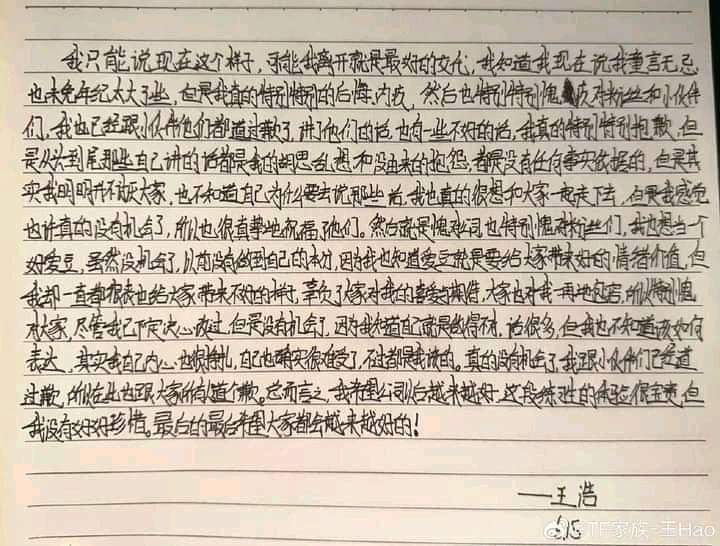 我只能说现在这个样子，可能我离开就是最好的交代，我知道我现在说我童言无忌
也未免年纪太大了些，但是我真的特别特别的后悔、内疚，然后也特别特别愧疚对粉丝和小伙伴
们，我也已经跟小伙伴他们都道过歉了，讲了他们的话，也有一些不好的话，我真的特别特别抱歉，但
是从头到尾那些自己讲的话都是我的胡思乱想和没由来的抱怨，都是没有任何事实依据的，但是其
实我明明并不讨厌大家，也不知道自己为什么要去说那些话，我也真的很想和大家一起走下去，但是我感觉
也许真的没有机会了，所以也很真挚地祝福了他们。然后就是愧对公司也特别愧对粉丝们，我也想当一个
好爱豆，虽然没机会了，以前没有做到自己的本分，因为我也知道爱豆就是要给大家带来好的情绪价值，但
我却一直都很丧也给大家带来不好的样子，辜负了大家对我的喜爱与期待，大家也对我一再地包容，所以特别愧
对大家，尽管我已下定决心改过，但是没有机会了，因为我知道自己就是做得不对，话很多，但我也不知道该如何
表达，其实我自己内心也很挣扎，自己也确实很难受了，不过都是我该的。真的没有机会了，我跟小伙伴们已经道
过歉，所以在此也跟大家所有人道个歉。总而言之，我希望公司以后越来越好，这段练习生的体验很宝贵，但
我没有好好珍惜。最后的最后希望大家都会越来越好的！
——王浩
6.15
@TF家族-王Hao